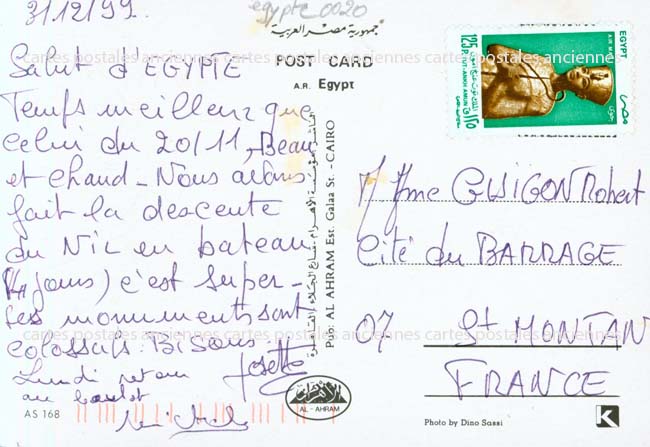 31/12/99
egypte 0020
Salut d'EGYPTE
Temps meilleur que
celui du 20/11, Beau
et chaud - Nous avons
fait la descente
du Nil en bateau
(4 jours) c'est super -
les monuments sont
colossals. Bisous
Lundi retour Josette
au boulot
AS 168
جمهورية مصر العربية
POST CARD
A.R. Egypt
Pub: AL AHRAM Est. Galaa St. - CAIRO
الأهرام
AL - AHRAM
EGYPT
AIR MAIL
125 P. TUT ANKH AMUN
١٢٥
مصر
M Mme GUIGON Robert
Cité du BARRAGE
07 St MONTAN
FRANCE
Photo by Dino Sassi
K
cartes postales anciennes cartes postales anciennes cartes postales anciennes